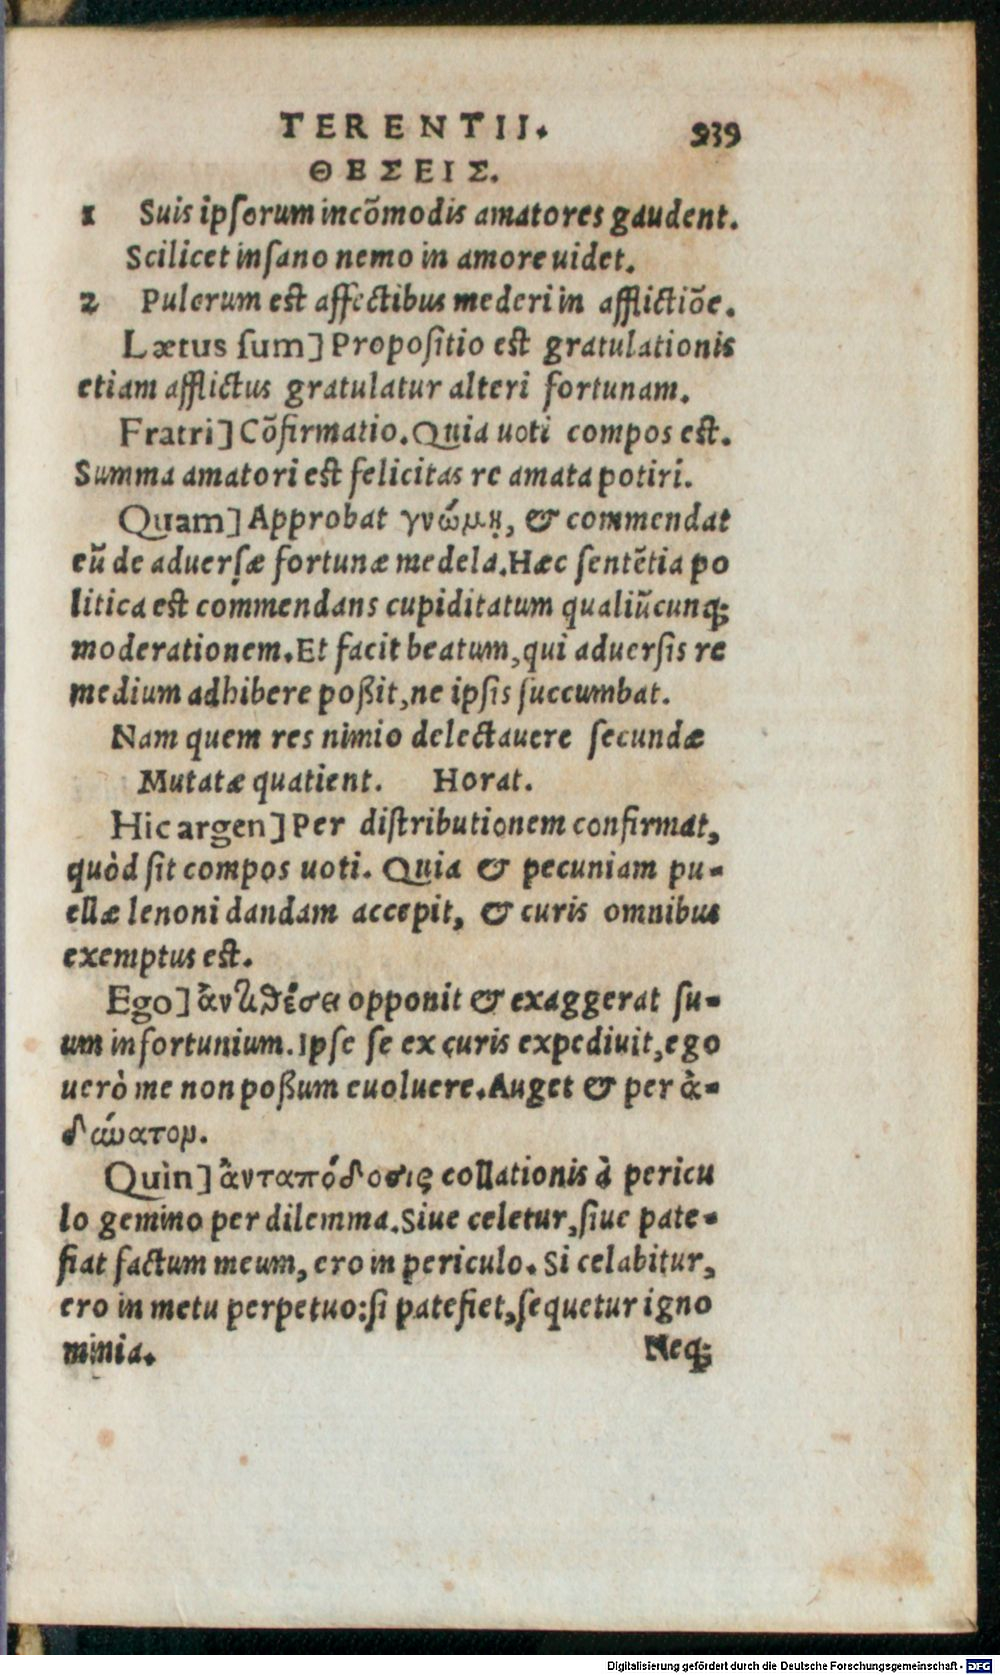 TERENTII. 939
ΘΕΣΕΙΣ.
1 Suis ipsorum incõmodis amatores gaudent.
Scilicet insano nemo in amore uidet.
2 Pulcrum est affectibus mederi in afflictiõe.
Lætus sum] Propositio est gratulationis
etiam afflictus gratulatur alteri fortunam.
Fratri] Cõfirmatio. Quia uoti compos est.
Summa amatori est felicitas re amata potiri.
Quam] Approbat γνώμῃ, & commendat
eũ de aduersæ fortunæ medela. Hæc sentẽtia po
litica est commendans cupiditatum qualiũcunq;
moderationem. Et facit beatum, qui aduersis re
medium adhibere poßit, ne ipsis succumbat.
Nam quem res nimio delectauere secundæ
Mutatæ quatient. Horat.
Hic argen] Per distributionem confirmat,
quòd sit compos uoti. Quia & pecuniam pu-
ellæ lenoni dandam accepit, & curis omnibus
exemptus est.
Ego] ἀντιθέσει opponit & exaggerat su-
um infortunium. Ipse se ex curis expediuit, ego
uerò me non poßum euoluere. Auget & per ἀ-
δύνατον.
Quin] ἀνταπόδοσις collationis à pericu
lo gemino per dilemma. Siue celetur, siue pate-
fiat factum meum, ero in periculo. Si celabitur,
ero in metu perpetuo: si patefiet, sequetur igno
minia. Neq;
Digitalisierung gefördert durch die Deutsche Forschungsgemeinschaft - DFG